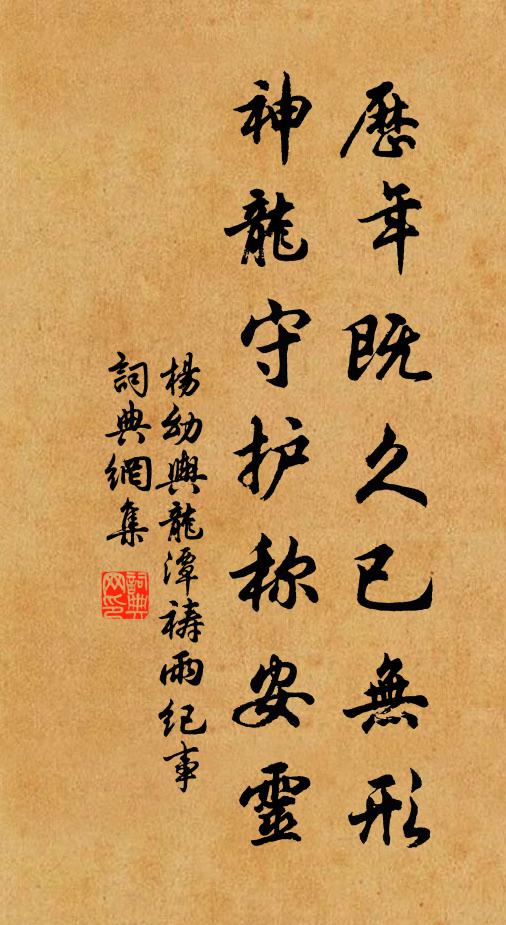 歷年既久已無形
神龍守护称安靈
楊幼輿龍潭禱雨纪事
詞典網集
詞典网印